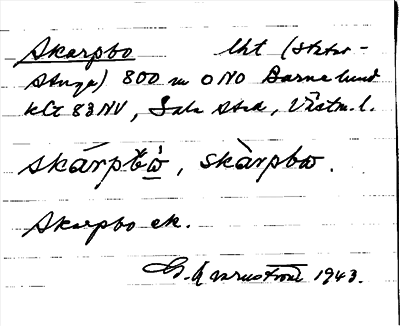 Skarpbo lht (sktor-
stuga) 800 m ONO Barnelund
kbl 83NV, Sala stad, Västm. l.
skárpbò, skàrpbo.
Skarpbo ek.
1943.